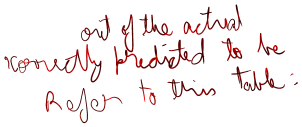 out of the actual
correctly predicted to be
Refer to this table: